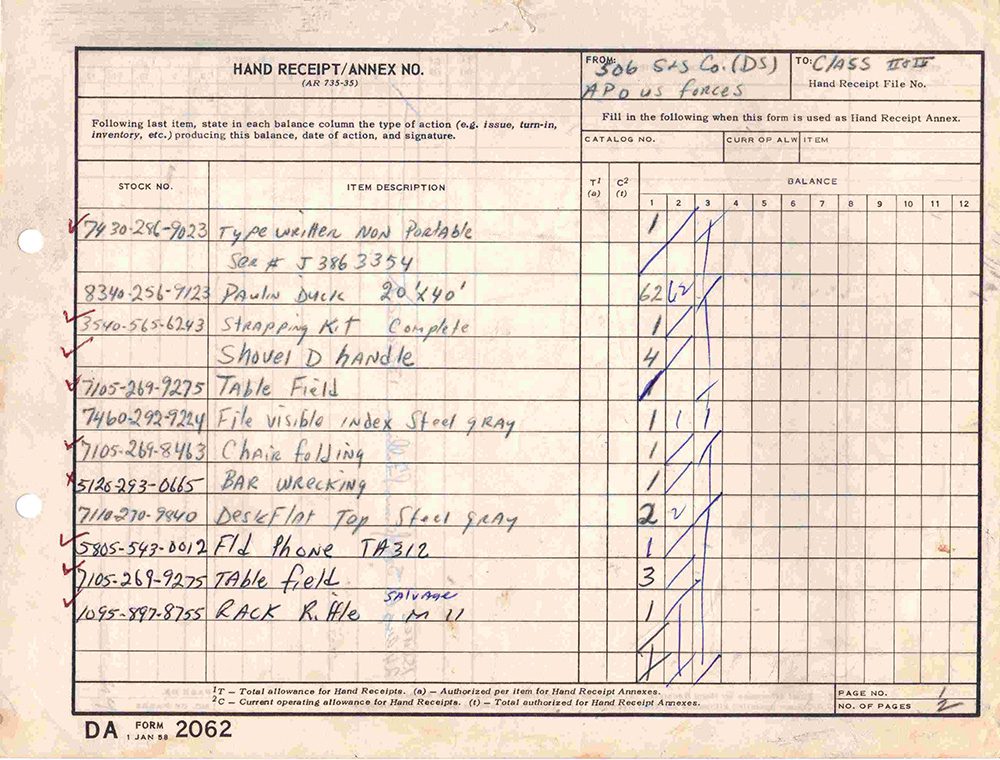 HAND RECEIPT/ANNEX NO.
(AR 735-35)
FROM: 506 S+S Co. (DS)
APO US forces
TO: CLASS II & IV
Hand Receipt File No.
Following last item, state in each balance column the type of action (e.g. issue, turn-in,
inventory, etc.) producing this balance, date of action, and signature.
Fill in the following when this form is used as Hand Receipt Annex.
CATALOG NO. CURR OP ALW ITEM
STOCK NO. ITEM DESCRIPTION T1 (a) C2 (t) BALANCE
1 2 3 4 5 6 7 8 9 10 11 12
7430-286-9023 Typewritten NON Portable 1
Ser # J3863354
8340-256-9123 PAulin Duck 20'x40' 62 62
3540-565-6243 Strapping Kit Complete 1
Shovel D handle 4
7105-269-9275 TAble Field 1
7460-292-9224 File visible index Steel gRAy 1 1 1
7105-269-8463 Chair folding 1
5120-293-0665 BAR WRECKING 1
7110-270-9840 Desk Flat Top Steel gRAy 2 2
5805-543-0012 Fld Phone TA312 1
7105-269-9275 TAble field 3
SALVAGE
1095-897-8755 RACK Rifle M 11 1
1T — Total allowance for Hand Receipts. (a) — Authorized per item for Hand Receipt Annexes.
2C — Current operating allowance for Hand Receipts. (t) — Total authorized for Hand Receipt Annexes.
PAGE NO. 1
NO. OF PAGES 2
DA FORM 1 JAN 58 2062